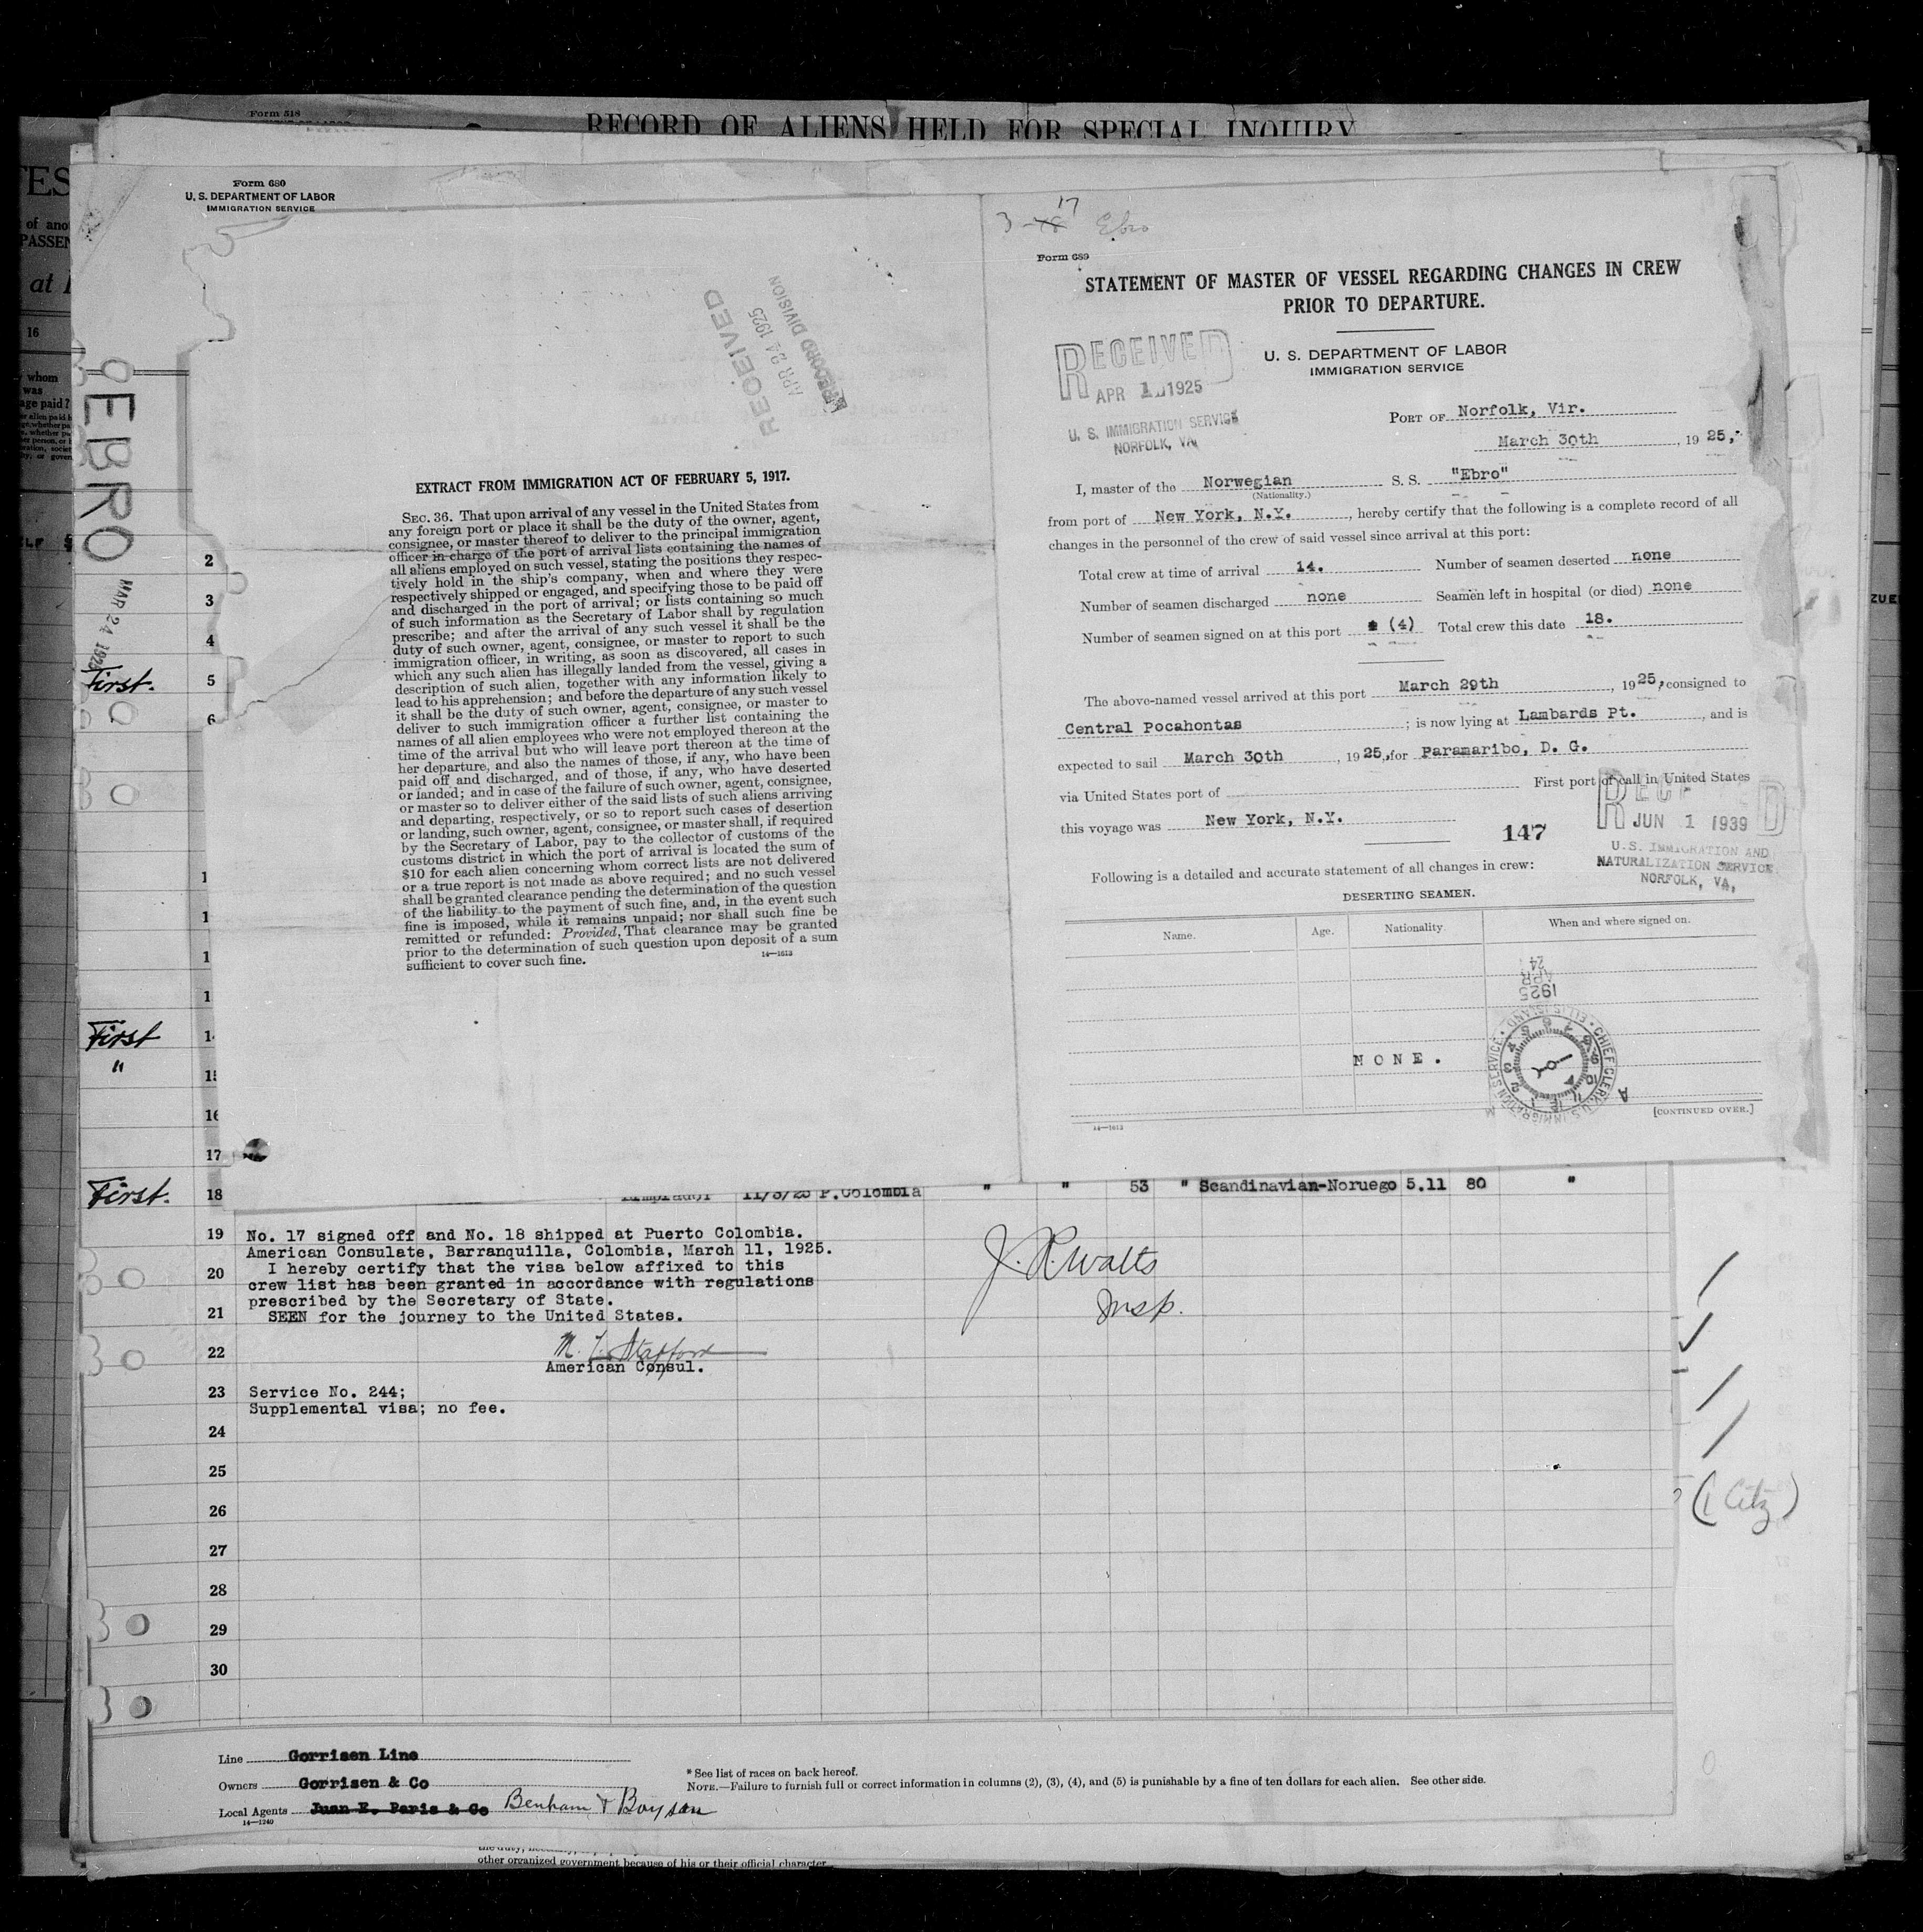 Form 518
RECORD OF ALIENS HELD FOR SPECIAL INQUIRY
Form 680
U. S. DEPARTMENT OF LABOR
IMMIGRATION SERVICE
RECEIVED
APR 24 1925
RECORD DIVISION
EXTRACT FROM IMMIGRATION ACT OF FEBRUARY 5, 1917.
SEC. 36. That upon arrival of any vessel in the United States from
any foreign port or place it shall be the duty of the owner, agent,
consignee, or master thereof to deliver to the principal immigration
officer in charge of the port of arrival lists containing the names of
all aliens employed on such vessel, stating the positions they respec-
tively hold in the ship's company, when and where they were
respectively shipped or engaged, and specifying those to be paid off
and discharged in the port of arrival; or lists containing so much
of such information as the Secretary of Labor shall by regulation
prescribe; and after the arrival of any such vessel it shall be the
duty of such owner, agent, consignee, or master to report to such
immigration officer, in writing, as soon as discovered, all cases in
which any such alien has illegally landed from the vessel, giving a
description of such alien, together with any information likely to
lead to his apprehension; and before the departure of any such vessel
it shall be the duty of such owner, agent, consignee, or master to
deliver to such immigration officer a further list containing the
names of all alien employees who were not employed thereon at the
time of the arrival but who will leave port thereon at the time of
her departure, and also the names of those, if any, who have been
paid off and discharged, and of those, if any, who have deserted
or landed; and in case of the failure of such owner, agent, consignee,
or master so to deliver either of the said lists of such aliens arriving
and departing, respectively, or so to report such cases of desertion
or landing, such owner, agent, consignee, or master shall, if required
by the Secretary of Labor, pay to the collector of customs of the
customs district in which the port of arrival is located the sum of
$10 for each alien concerning whom correct lists are not delivered
or a true report is not made as above required; and no such vessel
shall be granted clearance pending the determination of the question
of the liability to the payment of such fine, and, in the event such
fine is imposed, while it remains unpaid; nor shall such fine be
remitted or refunded: Provided, That clearance may be granted
prior to the determination of such question upon deposit of a sum
sufficient to cover such fine.
14—1613
3-18 17 Ebro
Form 689
STATEMENT OF MASTER OF VESSEL REGARDING CHANGES IN CREW
PRIOR TO DEPARTURE.
U. S. DEPARTMENT OF LABOR
IMMIGRATION SERVICE
RECEIVED
APR 1 1925
U. S. IMMIGRATION SERVICE
NORFOLK, VA.
PORT OF Norfolk, Vir.
March 30th, 1925,
I, master of the Norwegian S. S. "Ebro"
(Nationality.)
from port of New York, N.Y., hereby certify that the following is a complete record of all
changes in the personnel of the crew of said vessel since arrival at this port:
Total crew at time of arrival 14. Number of seamen deserted none
Number of seamen discharged none Seamen left in hospital (or died) none
Number of seamen signed on at this port (4) Total crew this date 18.
The above-named vessel arrived at this port March 29th, 1925, consigned to
Central Pocahontas; is now lying at Lambards Pt., and is
expected to sail March 30th, 1925, for Paramaribo, D. G.
via United States port of First port of call in United States
this voyage was New York, N.Y.
147
JUN 1 1939
U.S. IMMIGRATION AND
NATURALIZATION SERVICE
NORFOLK, VA,
Following is a detailed and accurate statement of all changes in crew:
DESERTING SEAMEN.
Name. Age. Nationality. When and where signed on.
1925 APR 24
NONE.
CHIEF CLERK, U.S. IMMIGRATION SERVICE · ELLIS ISLAND ·
[CONTINUED OVER.]
14—1613
16
at
EBRO
MAR 24 1925
2
3
4
First. 5
6
First 14
"
16
17
First. 18 11/3/25 P.Colombia " " 53 " Scandinavian-Noruego 5.11 80 "
19 No. 17 signed off and No. 18 shipped at Puerto Colombia.
American Consulate, Barranquilla, Colombia, March 11, 1925.
20 I hereby certify that the visa below affixed to this
crew list has been granted in accordance with regulations
prescribed by the Secretary of State.
21 SEEN for the journey to the United States.
J. R. Walts
Insp.
22 M. L. Stafford
American Consul.
23 Service No. 244;
Supplemental visa; no fee.
24
25
(1 Citz)
26
27
28
29
30
Line Gorrisen Line
Owners Gorrisen & Co
Local Agents Juan E. Paris & Co Benham & Boysen
14—1240
* See list of races on back hereof.
NOTE.—Failure to furnish full or correct information in columns (2), (3), (4), and (5) is punishable by a fine of ten dollars for each alien. See other side.
other organized government because of his or their official character